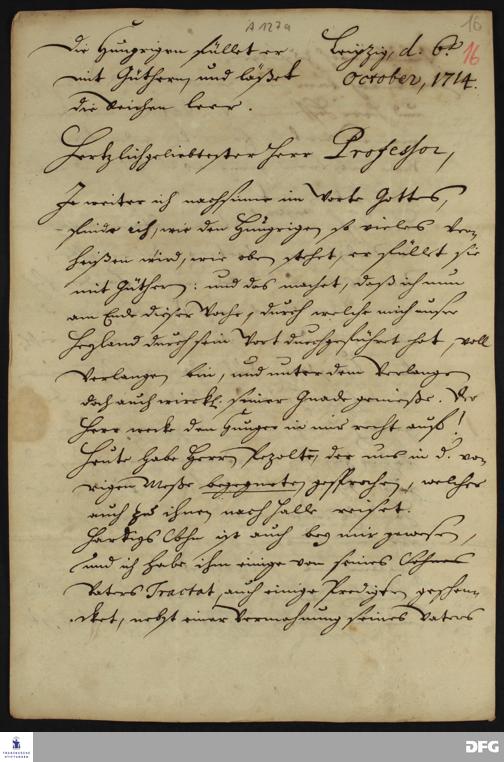 A 127a
16
Die Hungrigen füllet er Leipzig, d. 6t
16
mit Güthern, und läßet October, 1714.
die Reichen leer.
Hertzlichgeliebtester Herr Professor,
Je weiter ich nachsinne im Worte Gottes,
finde ich, wie den Hungrigen so vieles ver-
heißen wird, wie oben stehet, er füllet sie
mit Güthern: und das machet, daß ich nun
am Ende dieser Woche, durch welche mich unser
Heyland durch sein Wort durchgeführet hat, voll
Verlangen bin, und unter dem Verlangen
doch auch wirckl. seiner Gnade genieße. Der
Herr wecke den Hunger in mir recht auf!
Heute habe Herrn, der uns in d. vo-
rigen Meße begegneten gesprochen, welcher
auch zu ihnen nach Halle reiset.
Sohn ist auch bey mir gewesen,
und ich habe ihm einige von seines
Vaters Tractat, auch einige Predigten geschen-
cket, nebst einer Vermahnung seines Vaters
FRANCKESCHE STIFTUNGEN
DFG